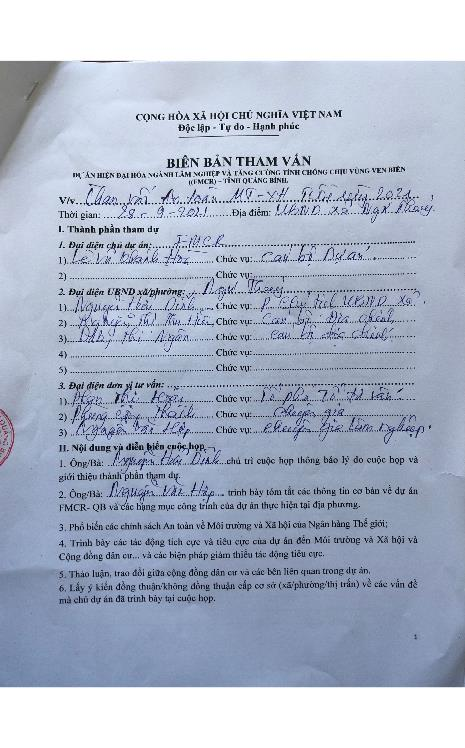 CỘNG HÒA XÃ HỘI CHỦ NGHĨA VIỆT NAM
Độc lập - Tự do - Hạnh phúc
BIÊN BẢN THAM VẤN
DỰ ÁN HIỆN ĐẠI HÓA NGÀNH LÂM NGHIỆP VÀ TĂNG CƯỜNG TÍNH CHỐNG CHỊU VÙNG VEN BIỂN
((FMCR) – TỈNH QUẢNG BÌNH.
V/v Tham vấn An toàn MT-XH 2021
Thời gian: 28 - 9 - 2021 Địa điểm: UBND xã
I. Thành phần tham dự
1. Đại diện chủ dự án: FMCR
1) Lê Vũ Khánh Hòa Chức vụ: Cán bộ Dự án
2) Chức vụ:
2. Đại diện UBND xã/phường:
1) Nguyễn Hữu Định Chức vụ: P. Chủ tịch UBND xã
2) Chức vụ: Cán bộ địa chính
3) Thị Ngân Chức vụ: Cán bộ địa chính
4) Chức vụ:
5) Chức vụ:
3. Đại diện đơn vị tư vấn:
1) Phan Thị Chức vụ: Tổ phó Tổ tư vấn
2) Phùng Thanh Chức vụ: Chuyên gia
3) Nguyễn Văn Hợp Chức vụ: Chuyên gia Lâm nghiệp
II. Nội dung và diễn biến cuộc họp
1. Ông/Bà: Nguyễn Hữu Định chủ trì cuộc họp thông báo lý do cuộc họp và
giới thiệu thành phần tham dự.
2. Ông/Bà: Nguyễn Văn Hợp trình bày tóm tắt các thông tin cơ bản về dự án
FMCR- QB và các hạng mục công trình của dự án thực hiện tại địa phương.
3. Phổ biến các chính sách An toàn về Môi trường và Xã hội của Ngân hàng Thế giới;
4. Trình bày các tác động tích cực và tiêu cực của dự án đến Môi trường và Xã hội và
Cộng đồng dân cư... và các biện pháp giảm thiểu tác động tiêu cực.
5. Thảo luận, trao đổi giữa cộng đồng dân cư và các bên liên quan trong dự án.
6. Lấy ý kiến đồng thuận/không đồng thuận cấp cơ sở (xã/phường/thị trấn) về các vấn đề
mà chủ dự án đã trình bày tại cuộc họp.
1